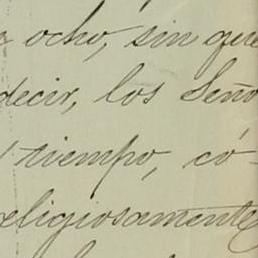 ocho, sin que
decir, los Seño
tiempo, có-
religiosamente